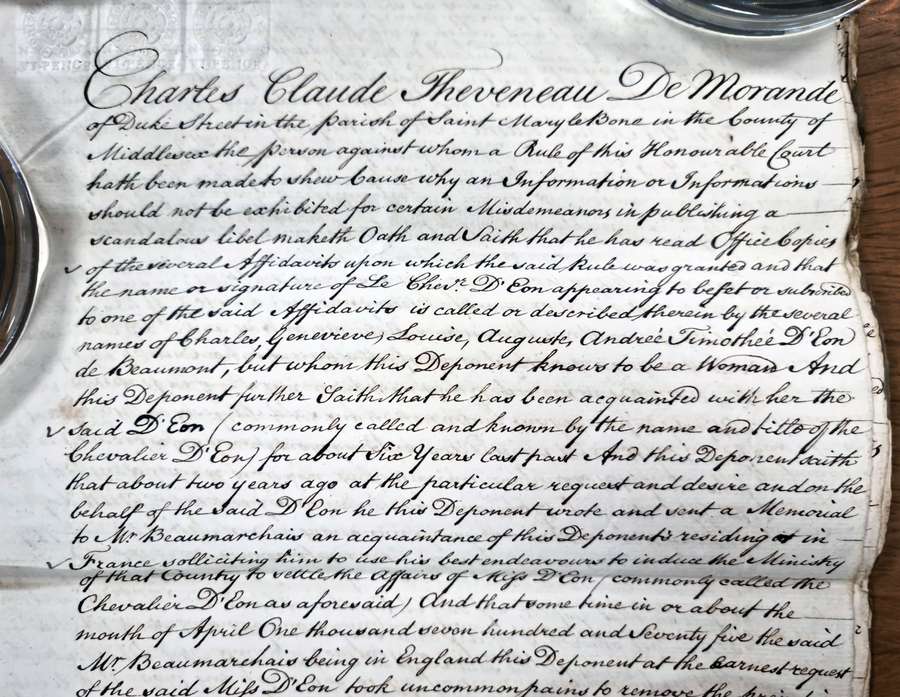 Charles Claude Theveneau De Morande
of Duke Street in the parish of Saint Mary le Bone in the County of
Middlesex the person against whom a Rule of this Honourable Court
hath been made to shew Cause why an Information or Informations
should not be exhibited for certain Misdemeanors in publishing a
scandalous libel maketh Oath and Saith that he has read Office Copies
of the several Affidavits upon which the said Rule was granted and that
the name or signature of Le Chevr. D'Eon appearing to be set or subscribed
to one of the said Affidavits is called or described therein by the several
names of Charles, Genevieve, Louise, Auguste, Andreé Timotheé D'Eon
de Beaumont, but whom this Deponent knows to be a Woman And
this Deponent further Saith that he has been acquainted with her the
said D'Eon (commonly called and known by the name and title of the
Chevalier D'Eon) for about Six Years last past And this Deponent saith
that about two years ago at the particular request and desire and on the
behalf of the said D'Eon he this Deponent wrote and sent a Memorial
to Mr. Beaumarchais an acquaintance of this Deponent's residing in
France solliciting him to use his best endeavours to induce the Ministry
of that Country to settle the Affairs of Miss D'Eon (commonly called the
Chevalier D'Eon as aforesaid) And that some time in or about the
month of April One thousand seven hundred and Seventy five the said
Mr. Beaumarchais being in England this Deponent at the earnest request
of the said Miss D'Eon took uncommon pains to remove the